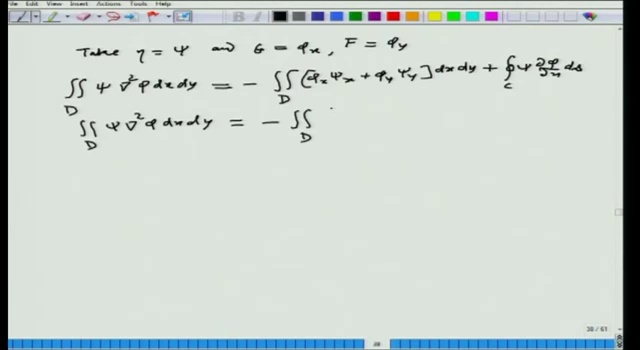 File Edit View Insert Actions Tools Help
Take η = ψ and G = φₓ, F = φ_y
∬_D ψ ∇²φ dx dy = − ∬_D [φₓ ψₓ + φ_y ψ_y] dx dy + ∮_C ψ ∂φ/∂n ds
∬_D ψ ∇²φ dx dy = − ∬_D
38 / 61
38